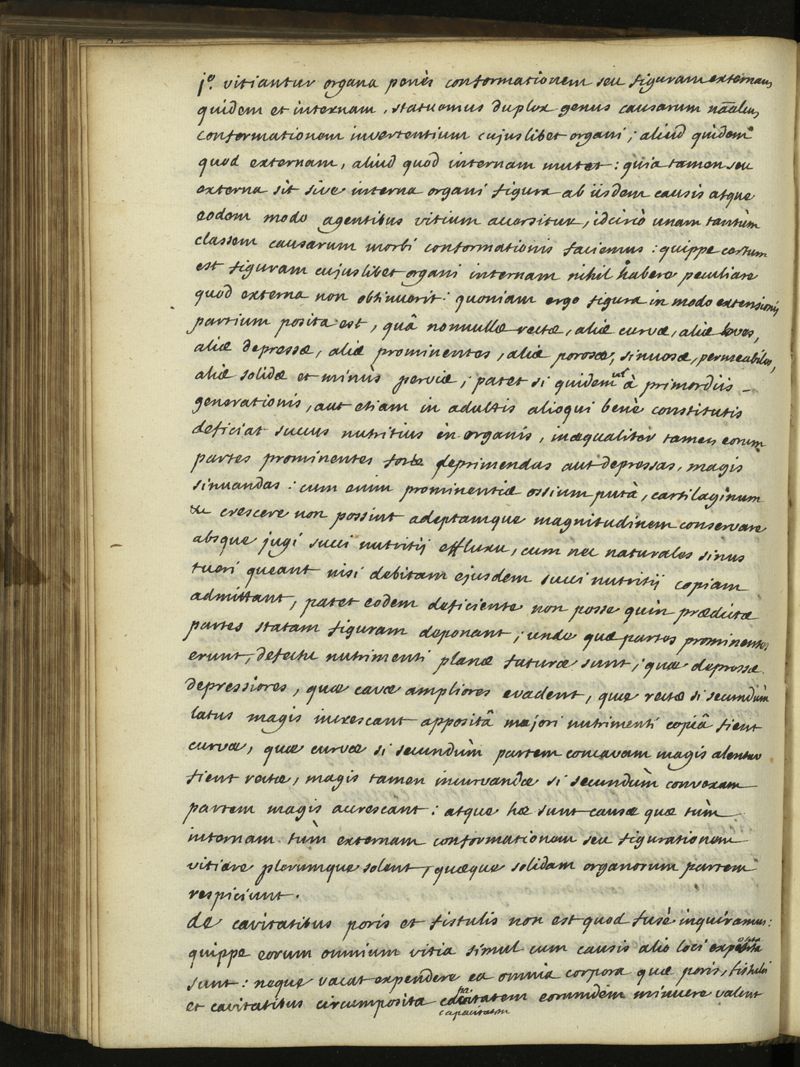 1º. vitiantur organa penès conformationem seu figuram externam
quidem et internam, statuemus duplex genus causarum nãalem
conformationem invertentium cujuslibet organi; aliud quidem
quod externam, aliud quod internam mutet: quia tamen seu
externa sit sive interna organi figura ab iisdem causis atque
eodem modo agentibus vitium accersitur, idcircò unam tantùm
classem causarum morbi conformationis faciemus: quippe certum
est figuram cujuslibet organi internam nihil habere peculiare
quod externa non obtinuerit: quoniam ergo figura in modo extensionis
partium posita est, quâ nonnullæ rectæ, aliæ curvæ, aliæ leves,
aliæ depressæ, aliæ prominentes, aliæ porosæ, sinuosæ, permeabiles,
aliæ solidæ et minùs perviæ; patet si quidem vel à primordiis
generationis, aut etiam in adultis alioqui benè constitutis
deficiat succus nutritius in organis, inæqualiter tamen eorum
partes prominentes fore deprimendas aut depressas, magis
sinuandas: cum enim prominentiæ ossium putà, cartilaginum
&c crescere non possint adeptamque magnitudinem conservare
absque jugi succi nutritij effluxu, cum nec naturales sinus
tueri queant nisi debitam ejusdem succi nutritij copiam
admittant, patet eodem deficiente non posse quin prædictæ
partes statam figuram deponant; unde quæ partes prominentes
erunt, defectu nutrimenti planæ futuræ sunt, quæ depressæ
depressiores, quæ cavæ ampliores evadent, quæ rectæ si secundùm
latus magis increscant appositâ majori nutrimenti copiâ fient
curvæ, quæ curvæ si secundùm partem concavam magis alentur
fient rectæ, magis tamen incurvandæ si secundùm convexam
partem magis accrescant: atque hæ sunt causæ quæ tùm
internam tùm externam conformationem seu figurationem
vitiare plerumque solent, quæque solidam organorum partem
respiciunt.
de cavitatibus poris et fistulis non est quod fusè inquiramus:
quippe eorum omnium vitia simul cum causis alio loci exposita
sunt: neque vacat expendere ea omnia corpora quæ poris, fistulis
et cavitatibus circumposita capacitatem eorumdem minuere valent
capacitatem